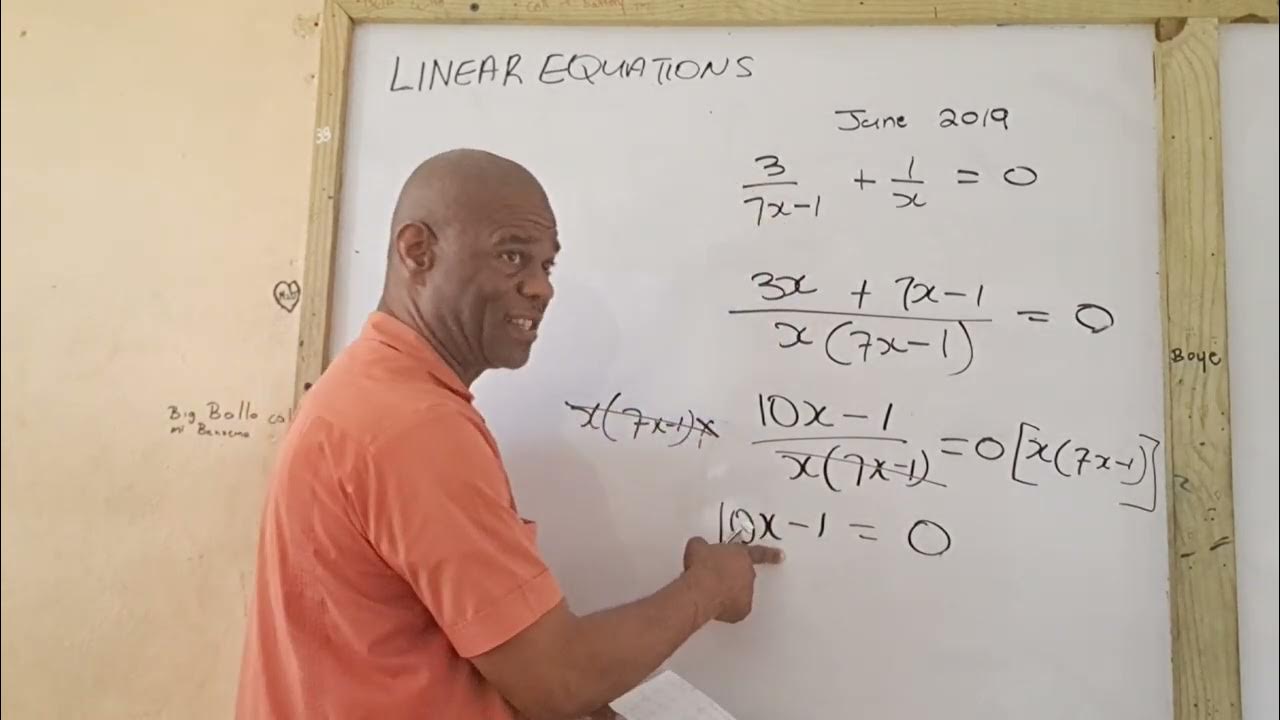 LINEAR EQUATIONS
June 2019
3/(7x-1) + 1/x = 0
(3x + 7x-1)/(x(7x-1)) = 0
x(7x-1)x (10x-1)/(x(7x-1)) = 0[x(7x-1)]
10x-1 = 0
38
Big Bollo
Boye